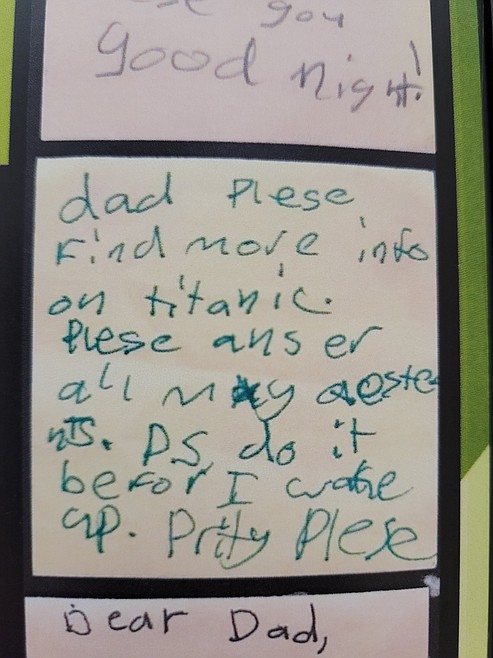 you
good night!
dad Plese
Find more info
on titanic.
Plese anser
all my qeste
nTs. PS, do it
befor I wake
up. Prity Plese
Dear Dad,